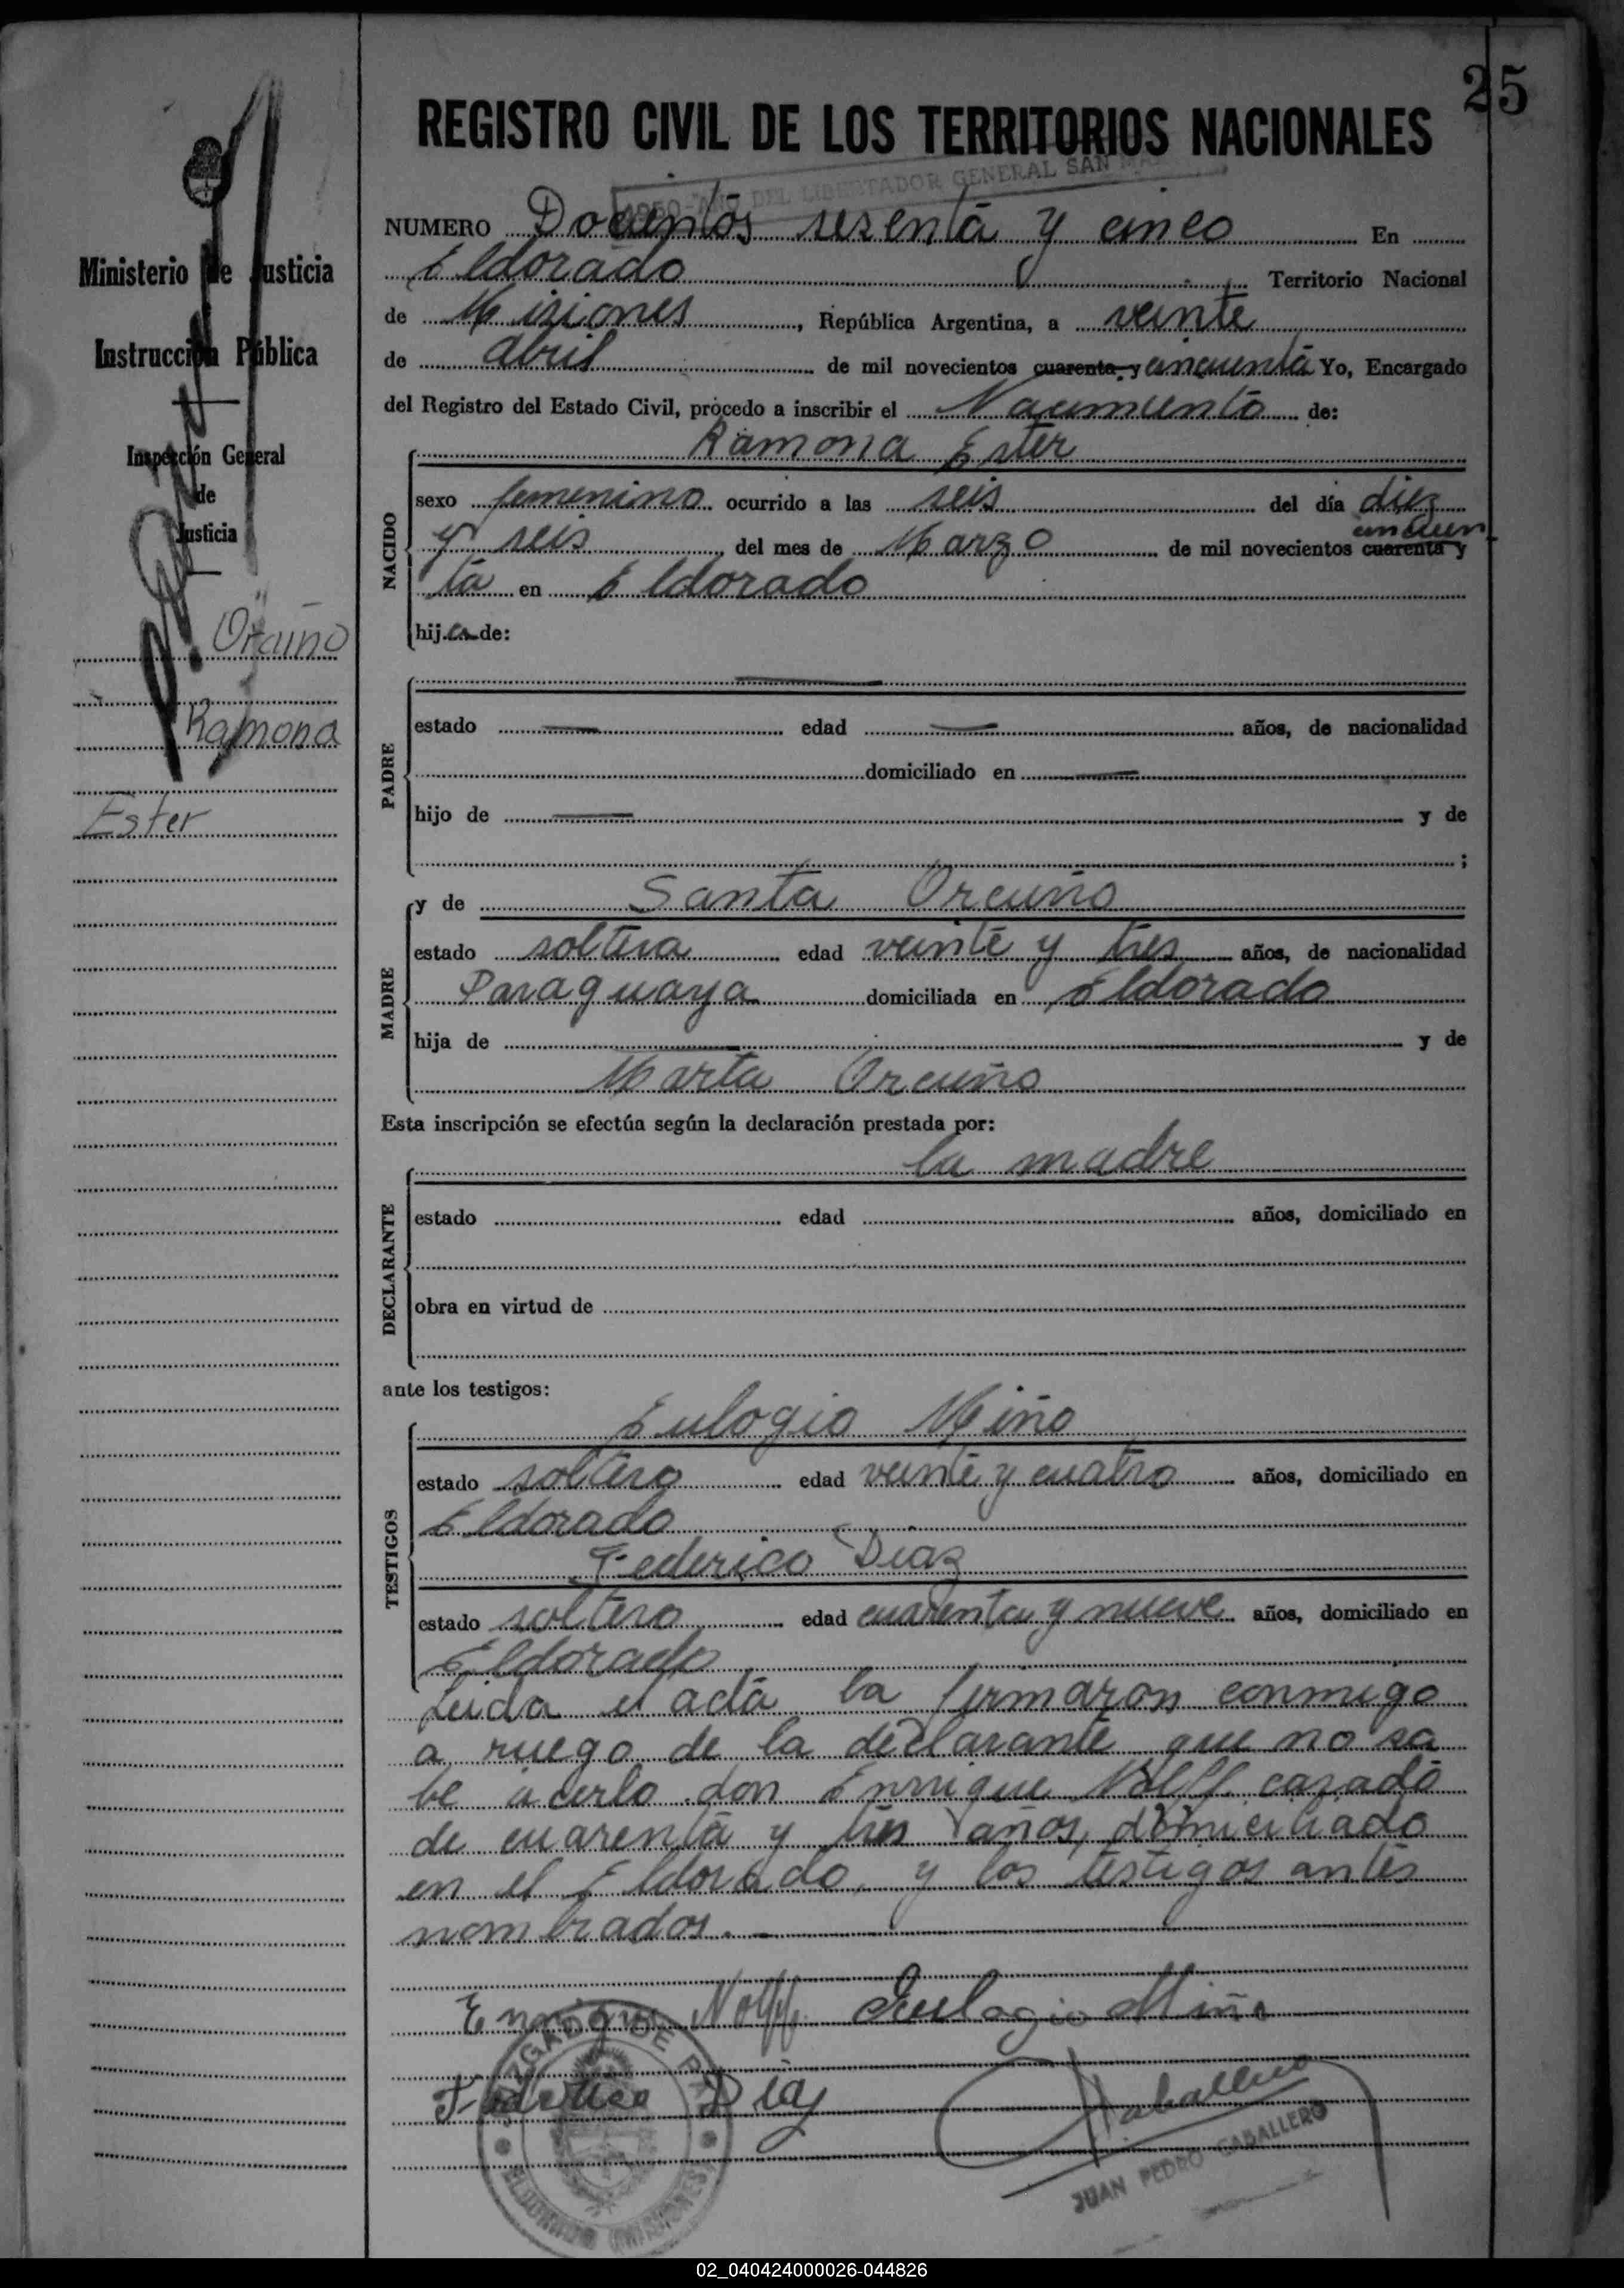 25
REGISTRO CIVIL DE LOS TERRITORIOS NACIONALES
1950-AÑO DEL LIBERTADOR GENERAL SAN
Ministerio de Justicia
Instrucción Pública
Inspección General
de
Justicia
Orcuño
Ramona
Ester
NUMERO Docientos sesenta y cinco En
Eldorado Territorio Nacional
de Misiones, República Argentina, a veinte
de abril de mil novecientos cuarenta y cincuenta Yo, Encargado
del Registro del Estado Civil, procedo a inscribir el Nacimiento de:
NACIDO
Ramona Ester
sexo femenino ocurrido a las seis del día diez
y seis del mes de Marzo de mil novecientos cuarenta y cincuen
ta en Eldorado
hija de:
PADRE
estado edad años, de nacionalidad
domiciliado en
hijo de y de
;
MADRE
y de Santa Orcuño
estado soltera edad veinte y tres años, de nacionalidad
Paraguaya domiciliada en Eldorado
hija de y de
Marta Orcuño
Esta inscripción se efectúa según la declaración prestada por:
la madre
DECLARANTE
estado edad años, domiciliado en
obra en virtud de
ante los testigos:
TESTIGOS
Eulogio Miño
estado soltero edad veinte y cuatro años, domiciliado en
Eldorado
Federico Diaz
estado soltero edad cuarenta y nueve años, domiciliado en
Eldorado
Leida el acta la firmaron conmigo
a ruego de la declarante que no sa
be acerlo don Enrique Nolff casado
de cuarenta y tres años, domiciliado
en el Eldorado, y los testigos antes
nombrados.
Enrique Nolff. Eulogio Miño
Federico Diaz
Caballero
JUAN PEDRO CABALLERO
JUZGADO DE PAZ
ELDORADO (MISIONES)
02_040424000026-044826